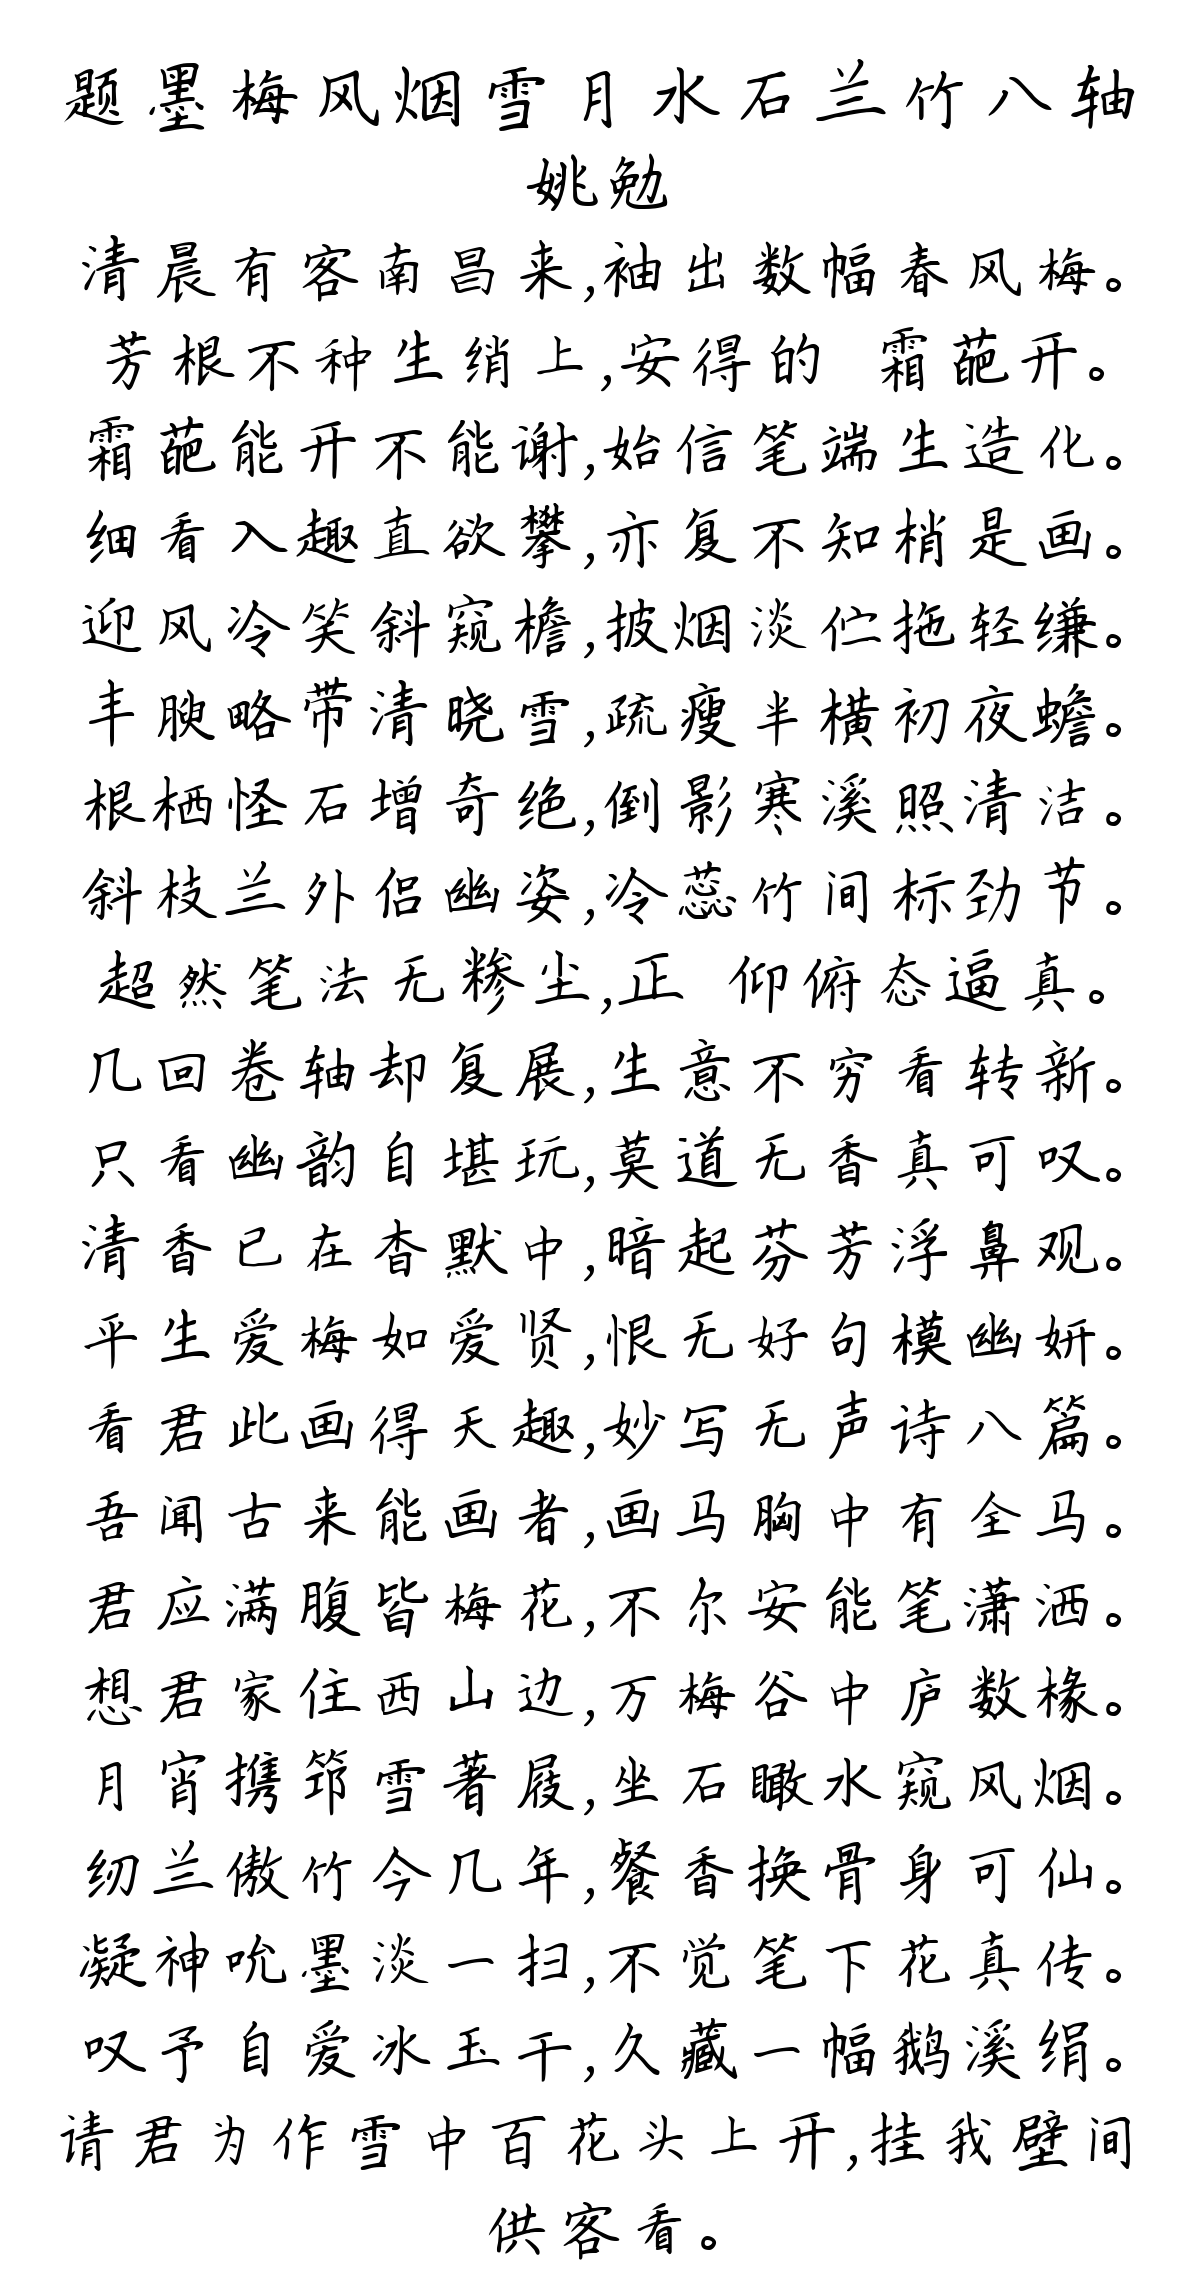 题墨梅风烟雪月水石兰竹八轴
姚勉
清晨有客南昌来,袖出数幅春风梅。
芳根不种生绡上,安得的 霜葩开。
霜葩能开不能谢,始信笔端生造化。
细看入趣直欲攀,亦复不知梢是画。
迎风冷笑斜窥檐,披烟淡伫拖轻缣。
丰腴略带清晓雪,疏瘦半横初夜蟾。
根栖怪石增奇绝,倒影寒溪照清洁。
斜枝兰外侣幽姿,冷蕊竹间标劲节。
超然笔法无糁尘,正 仰俯态逼真。
几回卷轴却复展,生意不穷看转新。
只看幽韵自堪玩,莫道无香真可叹。
清香已在杳默中,暗起芬芳浮鼻观。
平生爱梅如爱贤,恨无好句模幽妍。
看君此画得天趣,妙写无声诗八篇。
吾闻古来能画者,画马胸中有全马。
君应满腹皆梅花,不尔安能笔潇洒。
想君家住西山边,万梅谷中庐数椽。
月宵携筇雪著屐,坐石瞰水窥风烟。
纫兰傲竹今几年,餐香换骨身可仙。
凝神吮墨淡一扫,不觉笔下花真传。
叹予自爱冰玉干,久藏一幅鹅溪绢。
请君为作雪中百花头上开,挂我壁间
供客看。